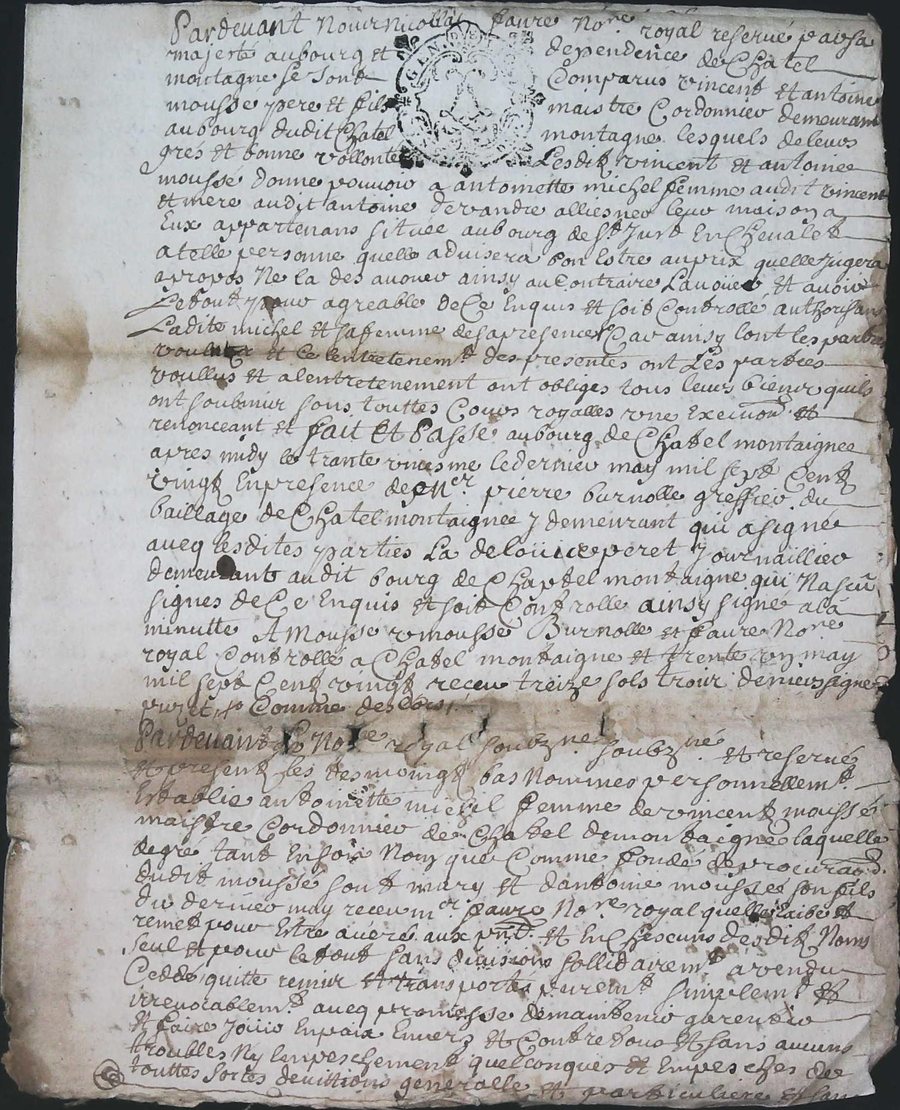 Pardevant Nous Nicolas faure No.re royal reservé par sa
majesté au bourg et dependence de Chatel
GEN. DE
montagne se sont Comparus vincent et antoine
mousse pere et fils maistre Cordonnier demeurant
au bourg dudit Chatel montagne lesquels de leurs
grés et bonne vollonté Lesdit vincent et antoine
mousse donne pouvoir a antoinette michel femme audit vincent
et mere audit antoine de vandre alliesner leur maison a
Eux appartenans située au bourg de St Just En Chevalet
a telle personne quelle advisera bon Estre au prix quelle jugera
apropos Ne la des avouer ainsy au Contraire Lavouer et avoir
Le tout pour agreable de Ce Enquis et soit Controllé authorisant
Ladite michel et sa femme de sa presence Car ainsy lont les parties
voullu et et Lentretenem.t des presentes ont Les parties
voullus et a lentretenement ont obliges tous leurs biens quils
ont soubmis sous touttes Cours royalles une Execuon et
renonceant et fait Et Passé au bourg de Chatel montaignee
apres midy le trante uniesme le dernier may mil sept Cent
vingt En presence de M.er pierre burnolle greffier du
baillage de Chatel montaignee y demeurant qui a signé
aveq lesdites parties La de peret Journaillier
demeurant audit bourg de Chastel montaigne qui Na sçu
signes de Ce Enquis et soit Controlle ainsy signé a la
minutte A Mousse v mousse Burnolle et faure No.re
royal Controllé a Chatel montaigne et trente un may
mil sept Cent vingt receu treize sols deniers signé
Comme dessus
Pardevant Le No.re royal soubzne soubzné et reservé
et present les tesmoingt bas Nommes personnellem.t
Establie antoinette michel femme de vincent mousse
maistre Cordonnier de Chatel de montaigne laquelle
de gré tant En son Nom que Comme fondé de procuraon
dudit mousse sont mary et dantoine mousse son fils
du dernier may receu m.er faure No.re royal quelle et
remet pour Estre aux p.nt et En Chescuns desdit Noms
seul et pour le tout sans division sollidairem.t a vendu
Cedde quitte remis et transporte purem.t simplem.t et
irrevocablem.t aveq promesse de maintenir garentir
et faire Jouir En paix Envers et Contre tous et sans aucuns
troubles Ny Empeschement quelconques et Empesches de
touttes sortes devictions generalle et particuliere et sans